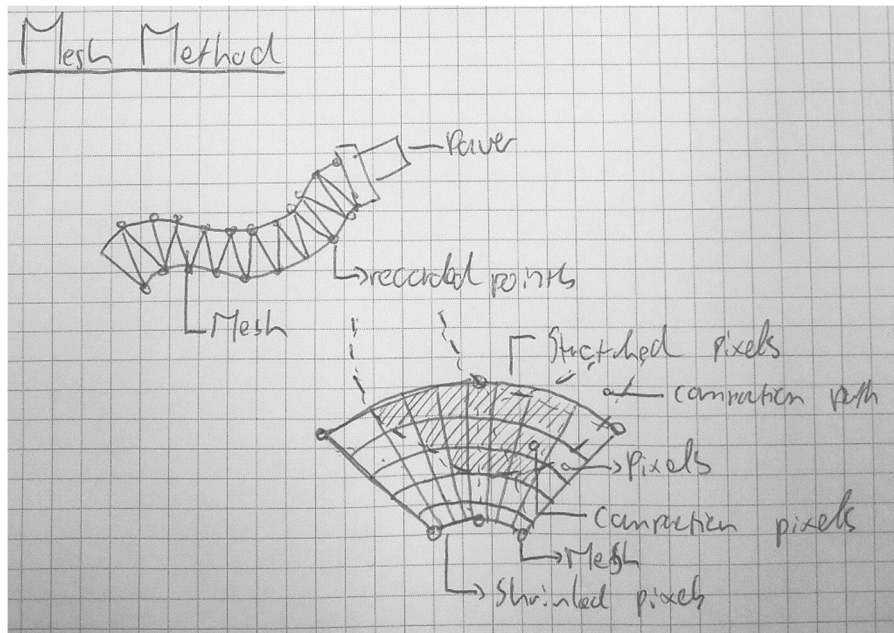 Mesh Method
Paver
recorded points
Mesh
Stretched pixels
connection path
pixels
Connection pixels
Mesh
Shrinked pixels